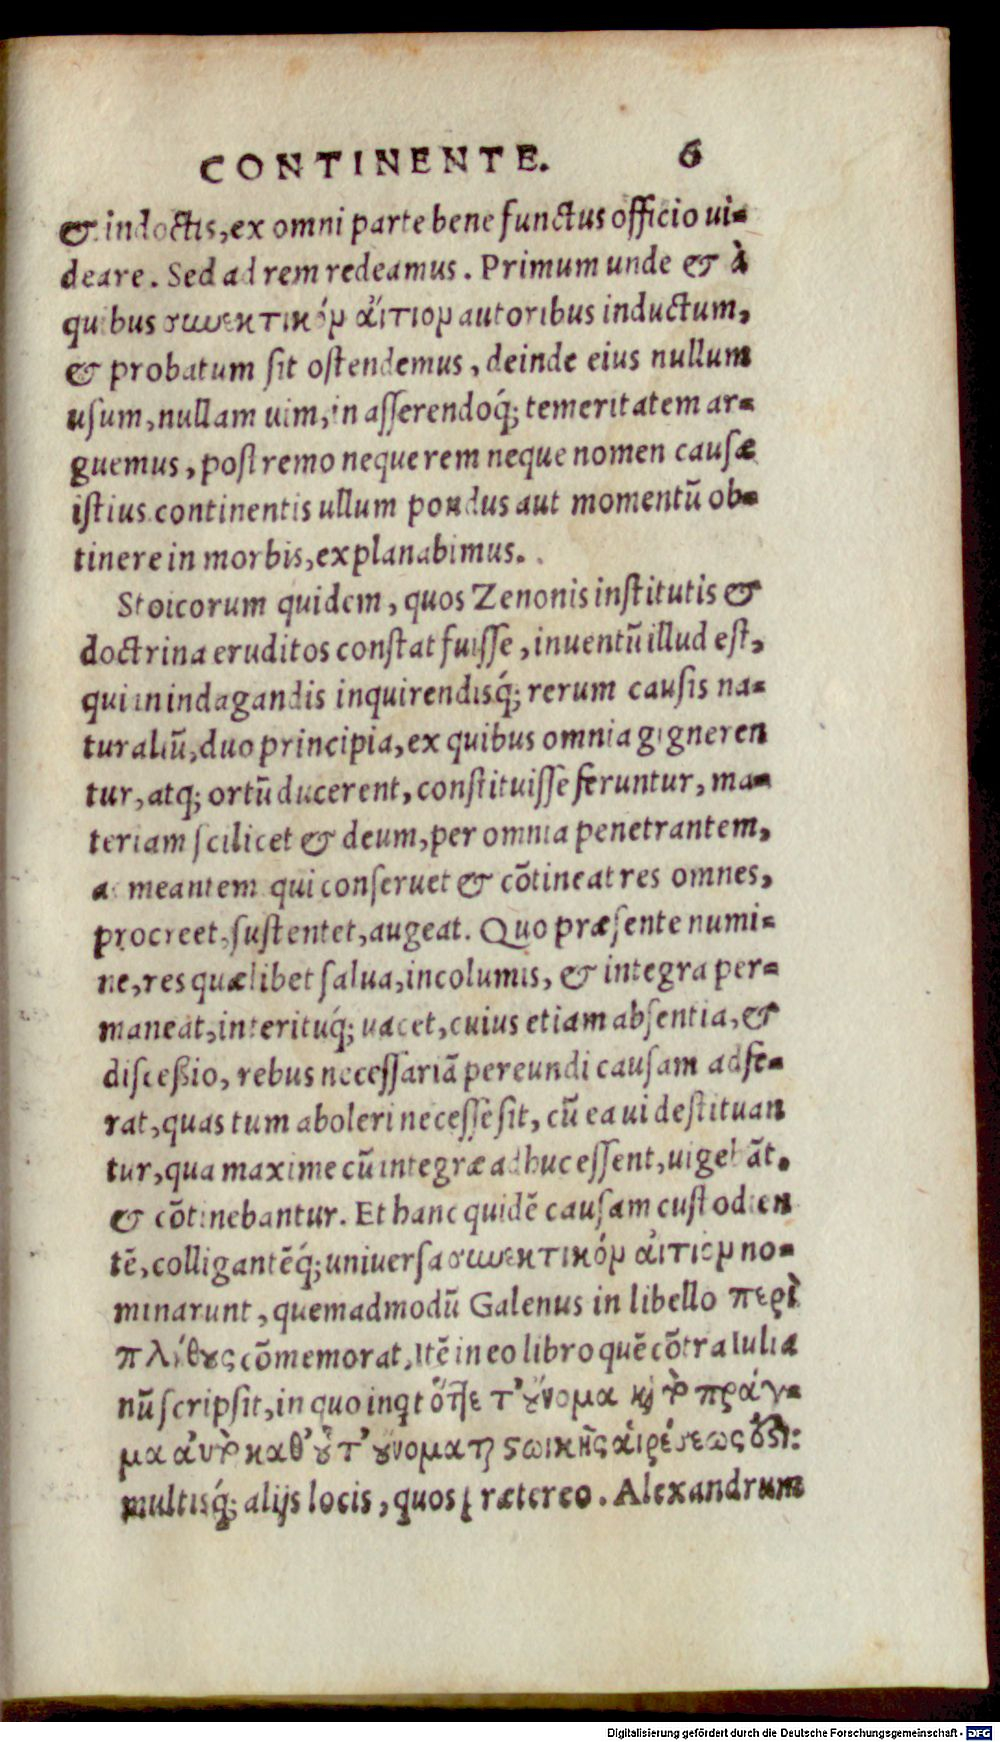 CONTINENTE. 6
& indoctis, ex omni parte bene functus officio ui-
deare. Sed ad rem redeamus. Primum unde & à
quibus συνεκτικόν ἄιτιον autoribus inductum,
& probatum sit ostendemus, deinde eius nullum
usum, nullam uim, in asserendoq́; temeritatem ar-
guemus, postremo neque rem neque nomen causæ
istius continentis ullum pondus aut momentũ ob-
tinere in morbis, explanabimus.
Stoicorum quidem, quos Zenonis institutis &
doctrina eruditos constat fuisse, inuentũ illud est,
qui in indagandis inquirendisq́; rerum causis na-
turaliũ, duo principia, ex quibus omnia gigneren
tur, atq; ortũ ducerent, constituisse feruntur, ma-
teriam scilicet & deum, per omnia penetrantem,
ac meantem qui conseruet & cõtineat res omnes,
procreet, sustentet, augeat. Quo præsente numi-
ne, res quælibet salua, incolumis, & integra per-
maneat, interituq́; uacet, cuius etiam absentia, &
disceßio, rebus necessariã pereundi causam adfe-
rat, quas tum aboleri necesse sit, cũ ea ui destituan
tur, qua maxime cũ integræ adhuc essent, uigebãt.
& cõtinebantur. Et hanc quidẽ causam custodien
tẽ, colligantẽq́; uniuersa συνεκτικόν ἄιτιον no-
minarunt, quemadmodũ Galenus in libello περὶ
πλήθους cõmemorat, Itẽ in eo libro quẽ cõtra Iulia
nũ scripsit, in quo inqt ὅτι τοὔνομα καὶ τὸ πράγ-
μα αὐτὸ καθ' οὗ τοὔνομα τῆς στωικῆς αἱρέσεως ὅστι:
multisq́; alijs locis, quos prætereo. Alexandrum
Digitalisierung gefördert durch die Deutsche Forschungsgemeinschaft - DFG